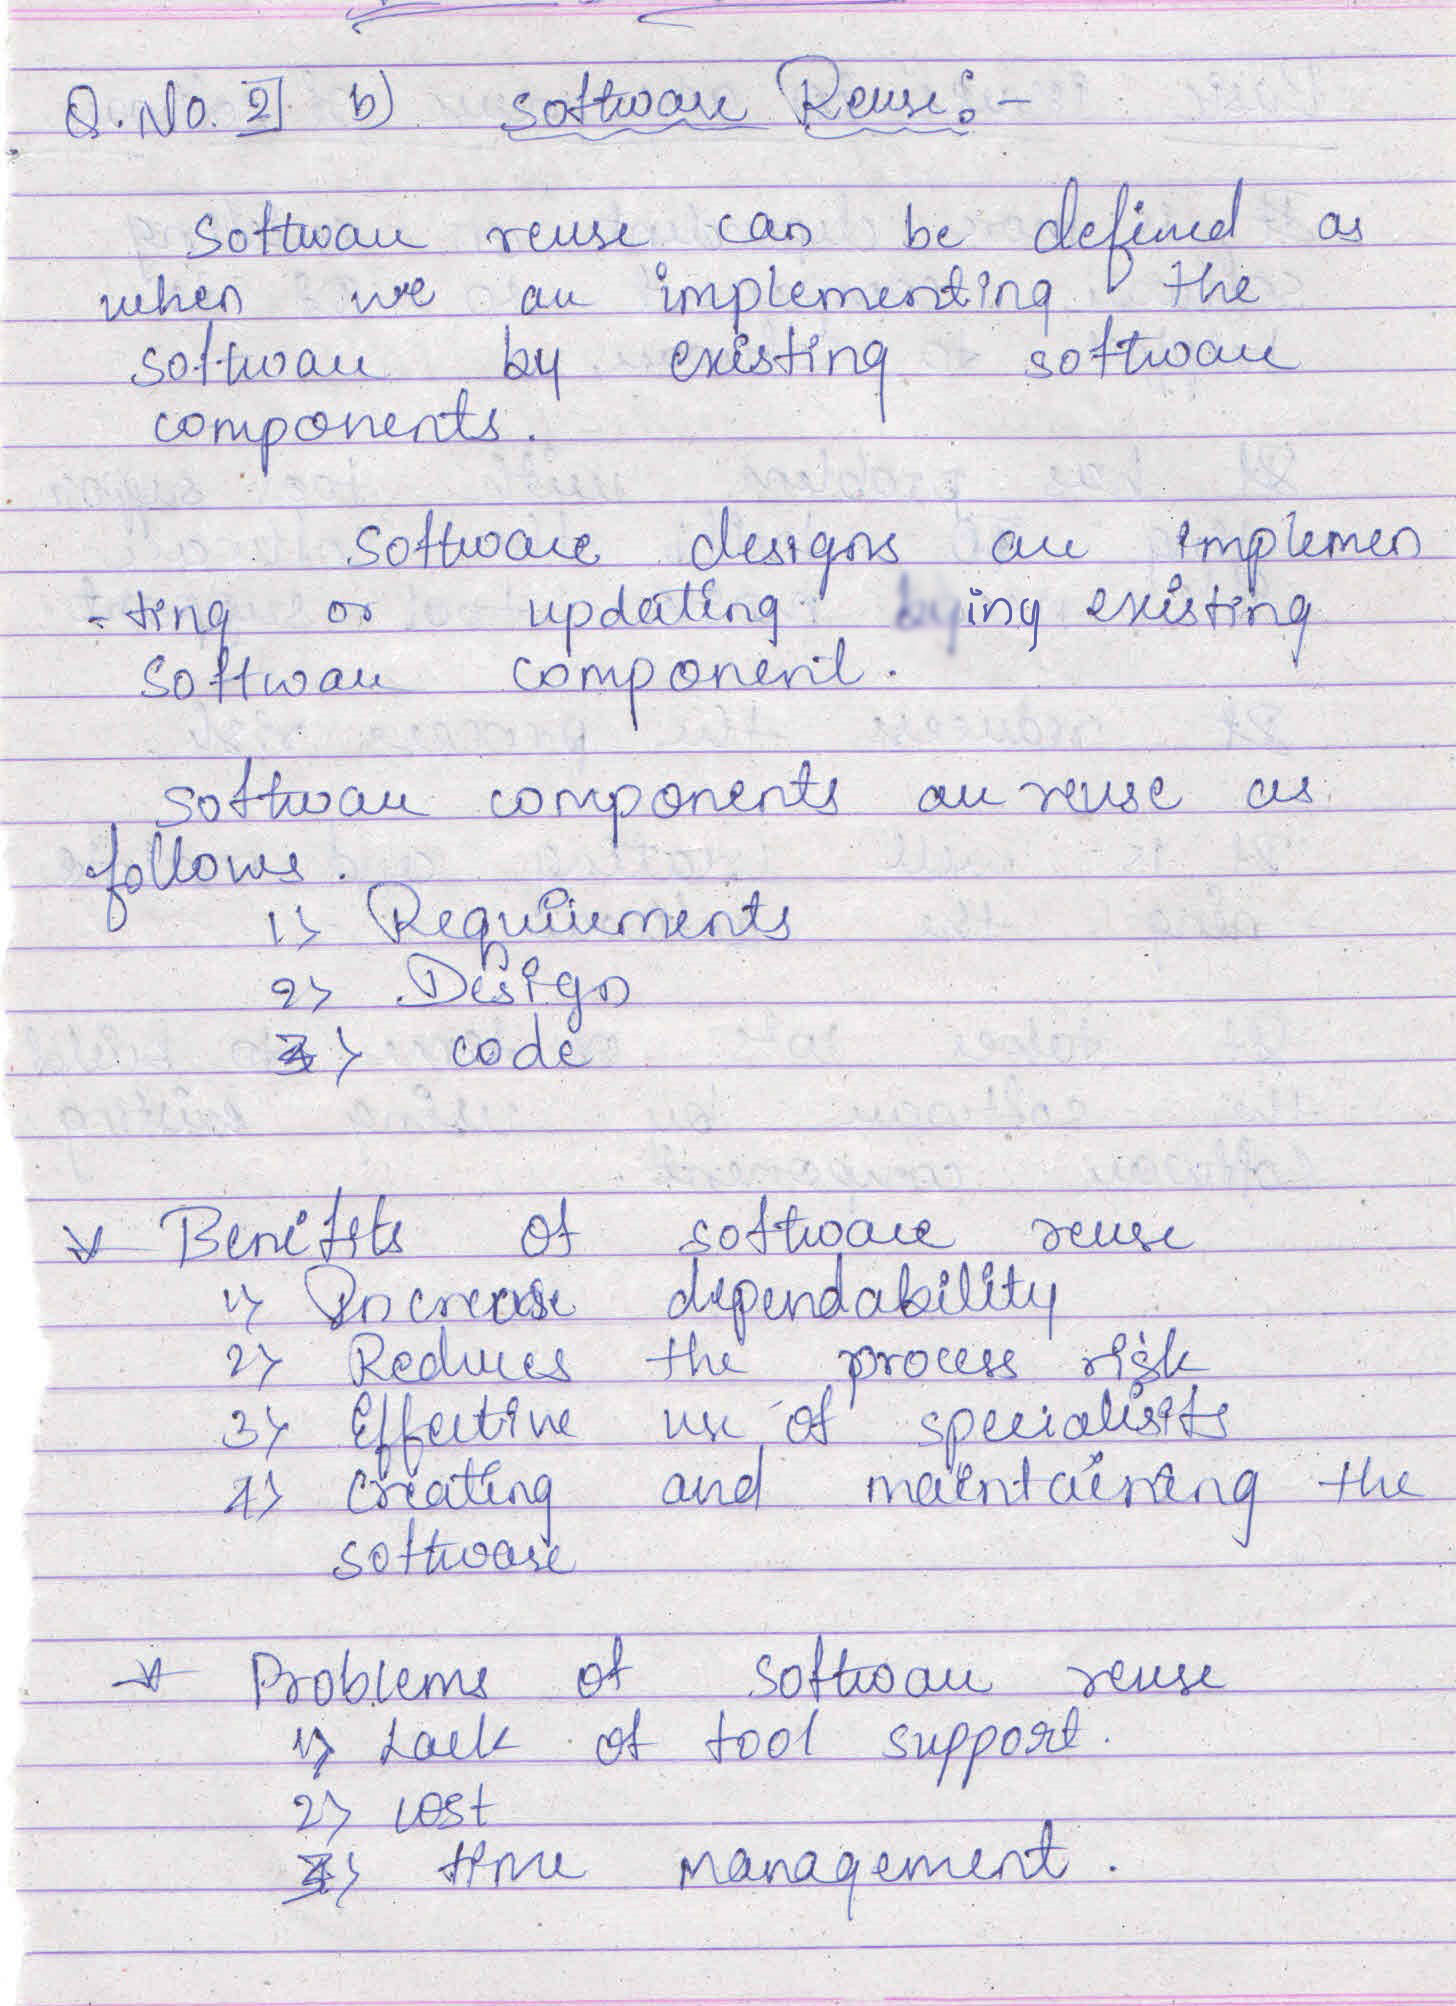 Q.No. 2 b) Software Reuse:-
Software reuse can be defined as
when we are implementing the
software by existing software
components.
Software designs are implemen
-ting or updating ing existing
software component.
Software components are reuse as
follows.
1> Requirements
2> Design
3> code
Benifits of software reuse
1> Increase dependability
2> Reduces the process risk
3> Effective use of specialists
4> creating and maintaining the
software
Problems of software reuse
1> Lack of tool support.
2> cost
3> time management.